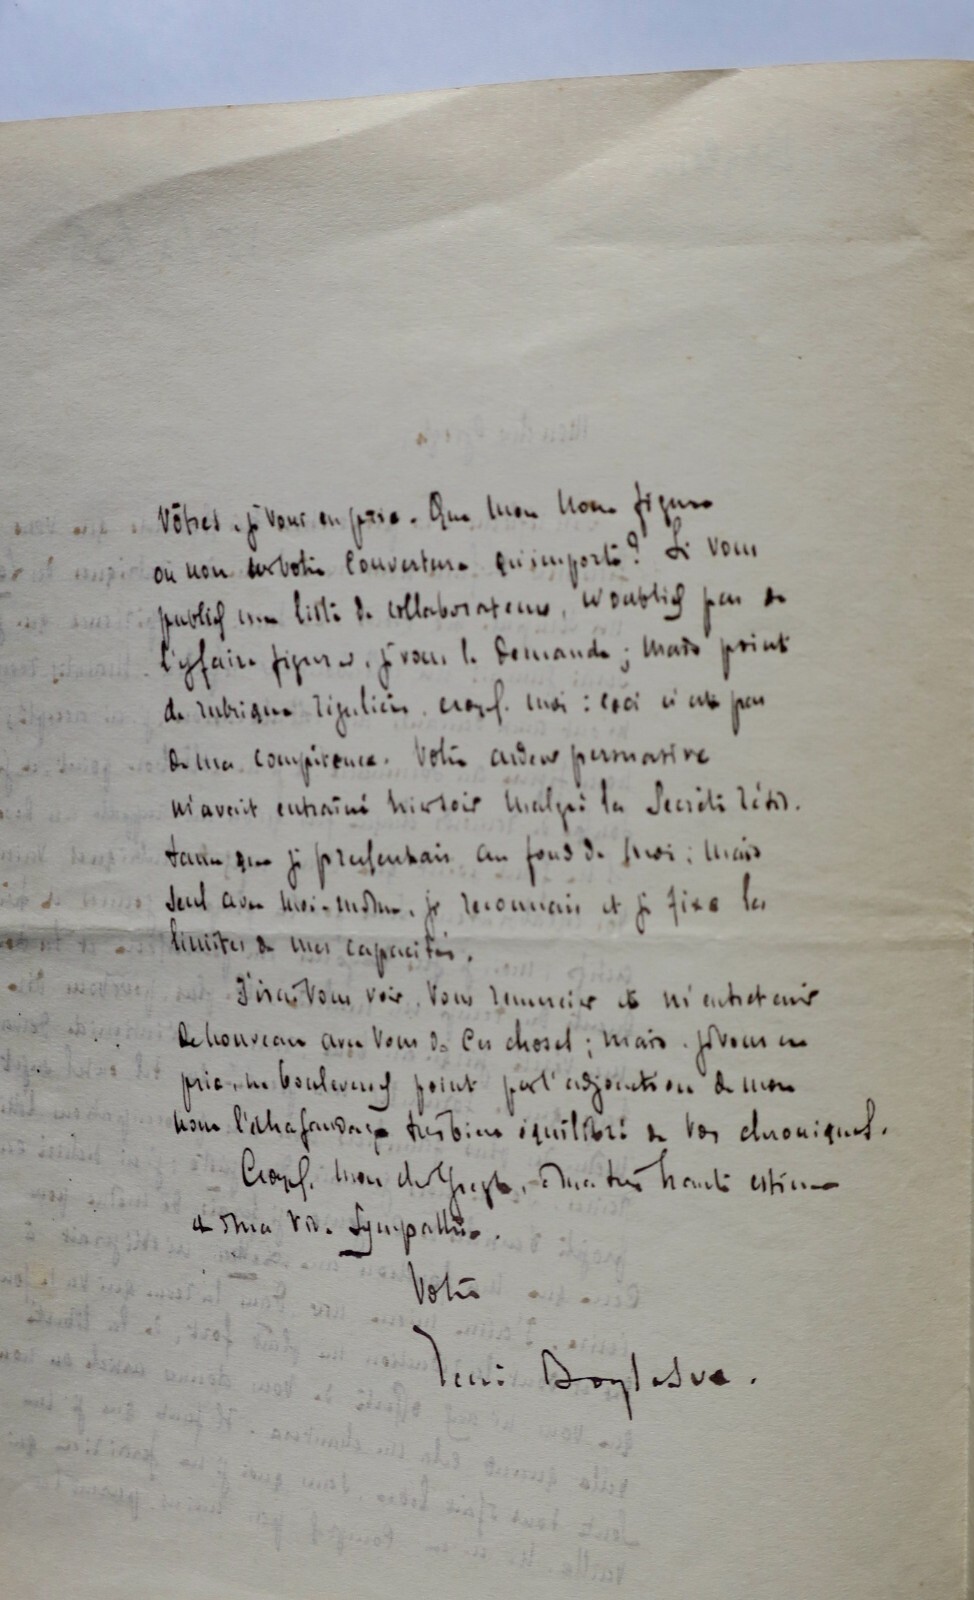 Vôtres, je vous en prie. Que mon nom figure
ou non sur votre couverture qu'importe ? Si vous
publiez une liste de collaborateurs, n'oubliez pas de
l'y faire figurer, je vous le demande ; mais point
de rubrique régulière, croyez-moi : ceci n'est pas
de ma compétence. Votre ardeur persuasive
m'avait entraîné hier soir malgré la secrète résis-
tance que je pressentais au fond de moi ; mais
seul avec moi-même, je reconnais et je fixe les
limites de mes capacités.
J'irai vous voir, vous remercier et m'entretenir
de nouveau avec vous de ces choses ; mais, je vous en
prie, ne bouleversez point par l'adjonction de mon
nom l'échafaudage très bien équilibré de vos chroniques.
Croyez, mon cher Gregh, à ma très haute estime
et à ma vive sympathie.
Votre
René Boylesve.